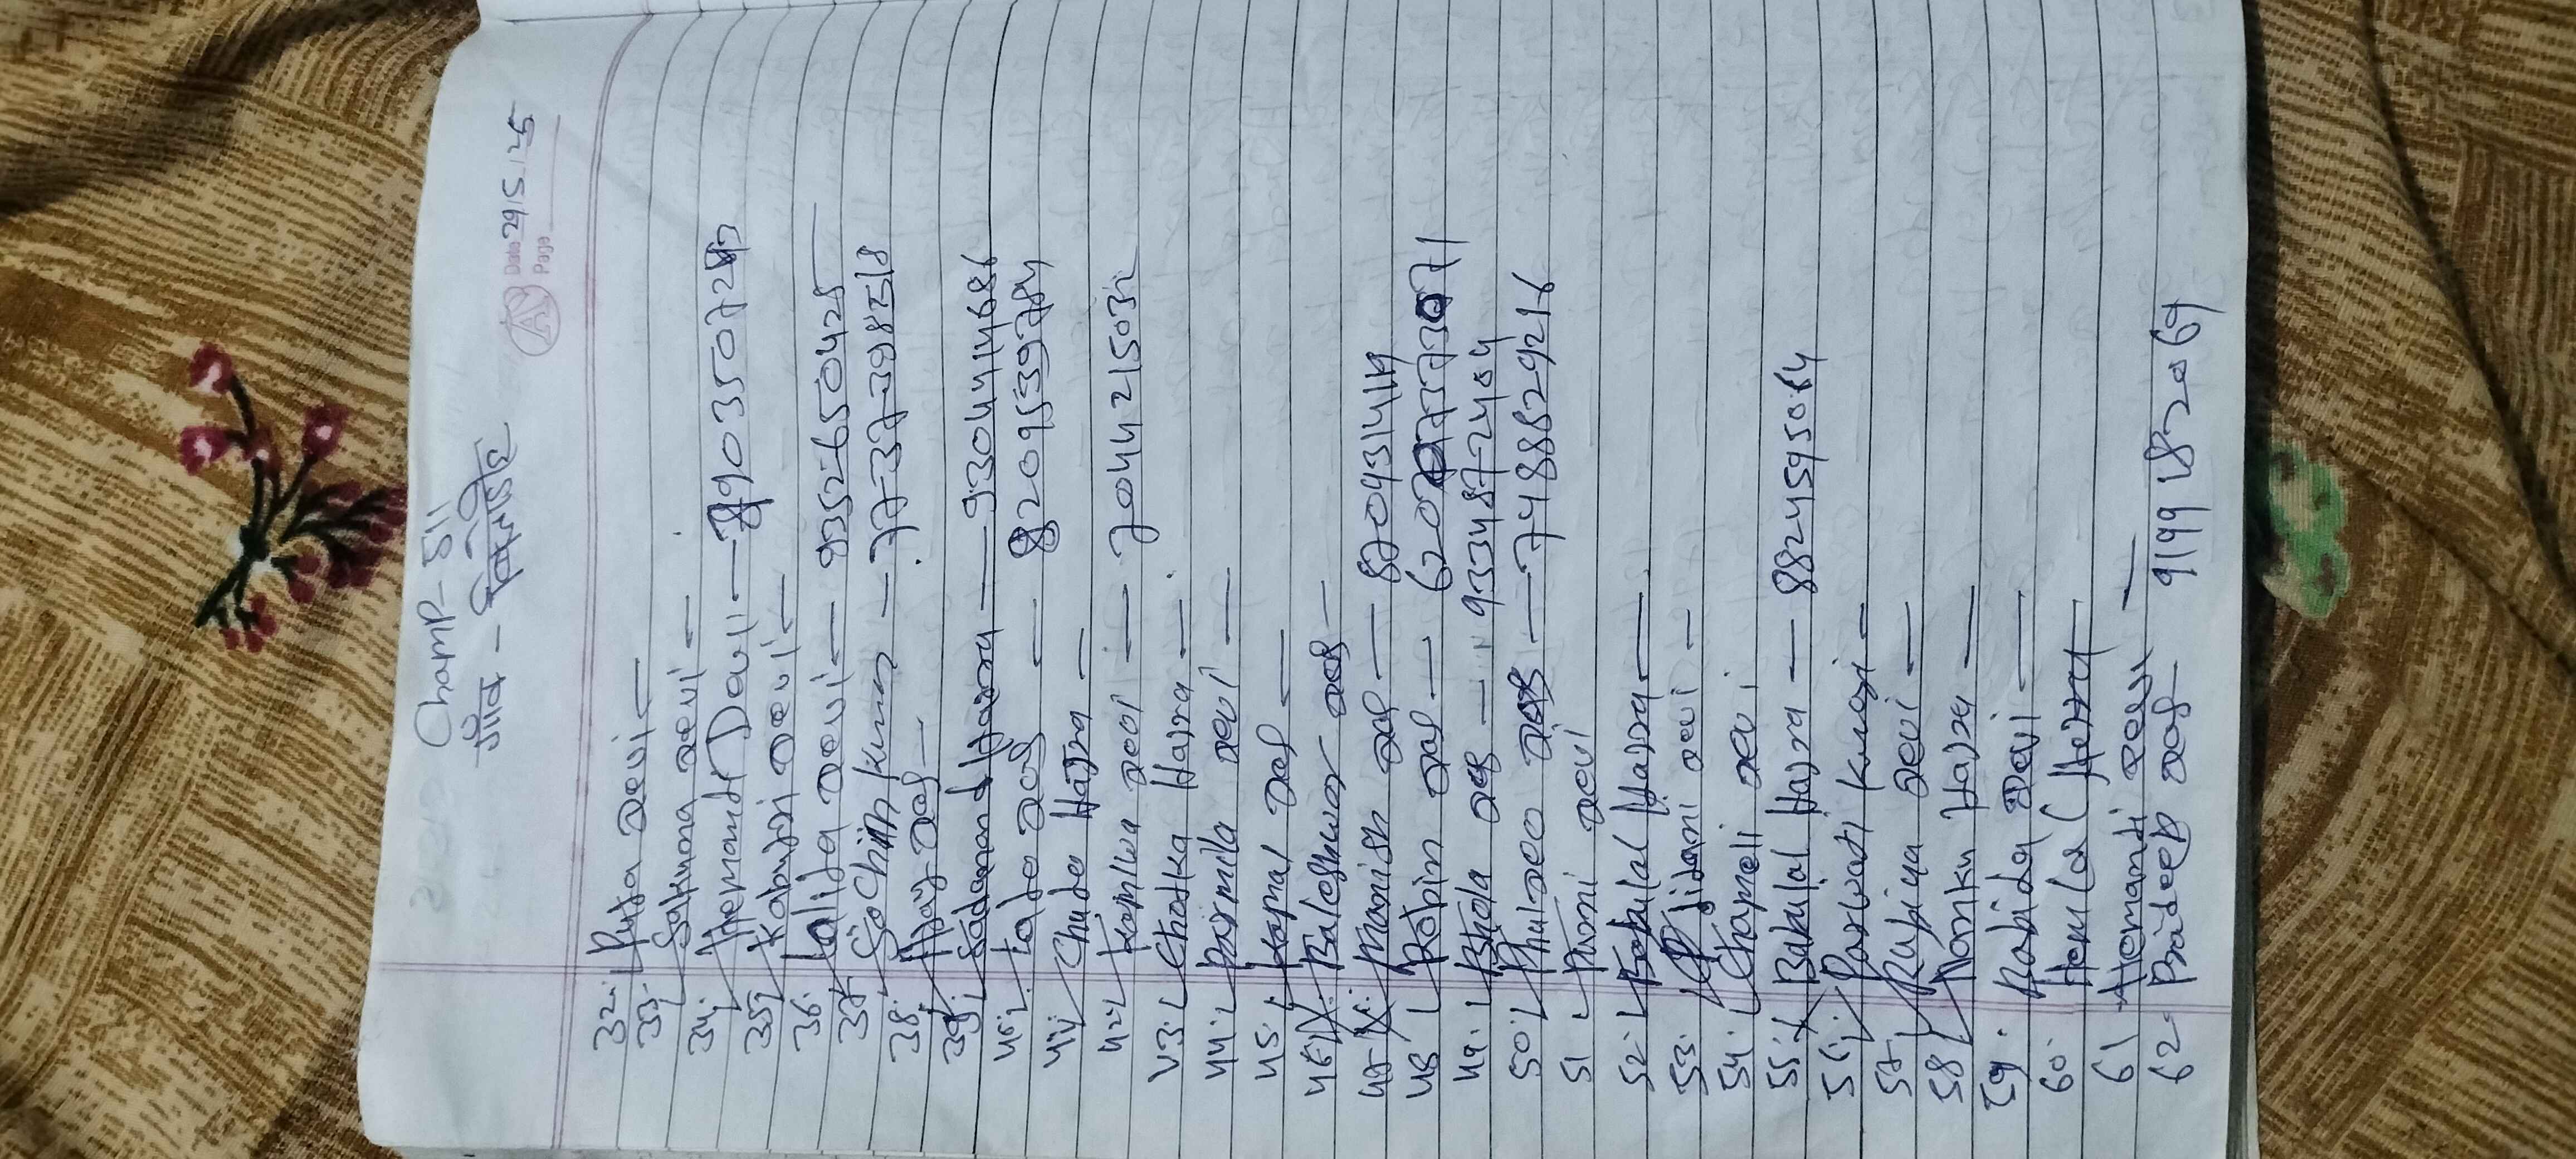 Champ - 511
गाँव -
Date 29/5/25
Page
32. Puja Devi —
33. Sakuna Devi —
34. Hemanti Devi —
35. Devi —
36. Lalita Devi — 9352650425
37. Sachin Kumar — 7737398518
38. Ajay Das —
39. Sadanand Hajara — 9304414686
40. Lado Das — 8209539784
41. Chudo Hajra —
42. Devi — 7044421503
43. Chotka Hajra —
44. Parmila Devi —
45. Kapral Das —
46. Baleshwar Das —
47. Manish Das — 8704314119
48. Robin Das —
49. Bhola Das — 9334872404
50. Phulseo Das — 7488829216
51. Punni Devi
52. Babulal Hajra —
53. Devi —
54. Chameli Devi
55. Bakulal Hajra — 8824595064
56. Parwati Kumari —
57. Rubiya Devi —
58. Nonku Hajra —
59. Rabida Devi —
60. Hemlal
61 Hemanti Devi —
62. Pradeep Das — 9199182069